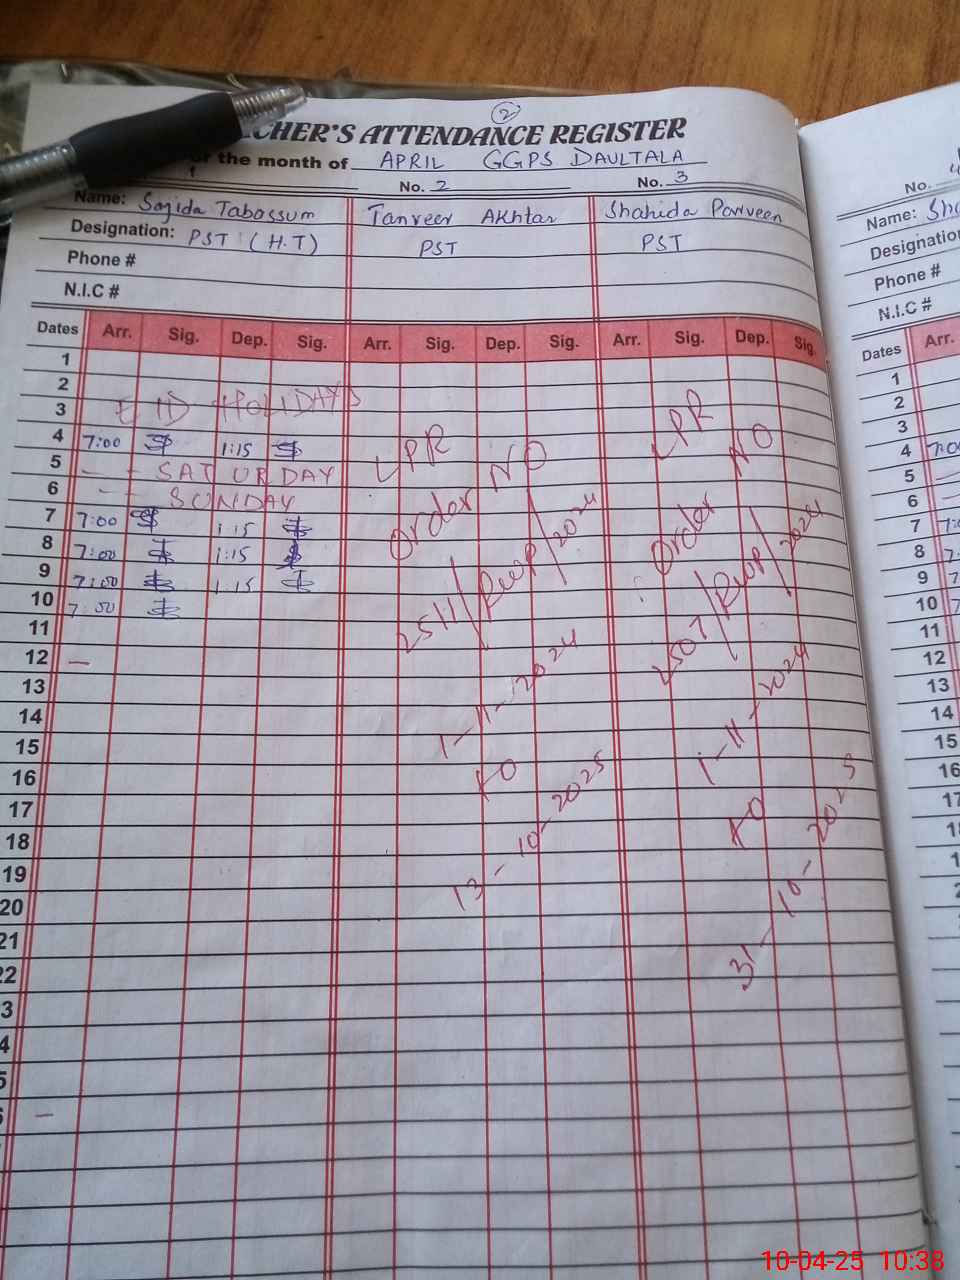 2
CHER'S ATTENDANCE REGISTER
or the month of APRIL GGPS DAULTALA
1 No. 2 No. 3
Name: Sajida Tabassum Tanveer Akhtar Shahida Parveen
Designation: PST (H.T) PST PST
Phone #
N.I.C #
Dates Arr. Sig. Dep. Sig. Arr. Sig. Dep. Sig. Arr. Sig. Dep. Sig.
1
2
3 EID HOLIDAYS
4 7:00 1:15
5 — - SATURDAY
6 - - SUNDAY
7 7:00 1:15
8 7:00 1:15
9 7:00 1:15
10 7:00
11
12 —
13
14
15
16
17
18
19
20
21
22
3
4
5
6 —
LPR
Order NO
2511/Rwp/2024
1-11-2024
to
13-10-2025
LPR
Order NO
2507/Rwp/2024
1-11-2024
to
31-10-2025
No. 4
Name: Sha
Designation
Phone #
N.I.C #
Dates Arr.
1
2
3
4 7:00
5
6
7
8
9
10
11
12
13
14
15
16
17
10-04-25 10:38